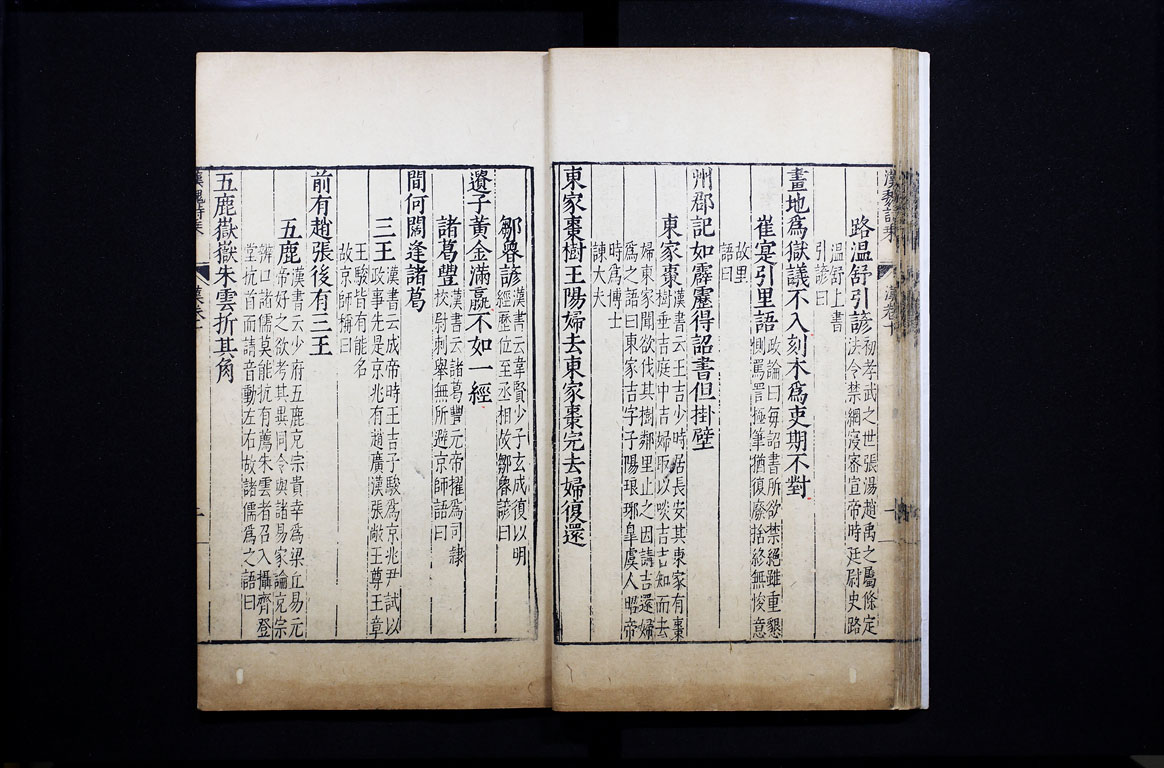 漢魏詩乗
漢卷十
一
路溫舒引諺
初孝武之世張湯趙禹之屬條定
法令禁網寖密宣帝時廷尉史路
溫舒上書
引諺曰
畫地爲獄議不入刻木爲吏期不對
崔寔引里語
政論曰每詔書所欲禁絕雖重懇
惻罵詈極筆猶復廢捨終無悛意
故里
語曰
州郡記如霹靂得詔書但掛壁
東家棗
漢書云王吉少時居長安其東家有棗
樹垂吉庭中吉婦取以啖吉吉知而去
婦東家聞欲伐其樹鄰里止之因請吉還婦
爲之語曰東家吉字子陽琅琊皐虞人昭帝
時爲博士
諫大夫
東家棗樹王陽婦去東家棗完去婦復還
鄒魯諺
漢書云韋賢少子玄成復以明
經歷位至丞相故鄒魯諺曰
遺子黃金滿籯不如一經
諸葛豐
漢書云諸葛豐元帝擢爲司隸
校尉刺舉無所避京師語曰
間何闊逢諸葛
三王
漢書云成帝時王吉子駿爲京兆尹試以
政事先是京兆有趙廣漢張敞王尊王章
王駿皆有能名
故京師稱曰
前有趙張後有三王
五鹿
漢書云少府五鹿充宗貴幸爲梁丘易元
帝好之欲考其異同令與諸易家論充宗
辨口諸儒莫能抗有薦朱雲者召入攝齊登
堂抗首而請音動左右故諸儒爲之語曰
五鹿嶽嶽朱雲折其角
漢魏詩乗
漢卷十